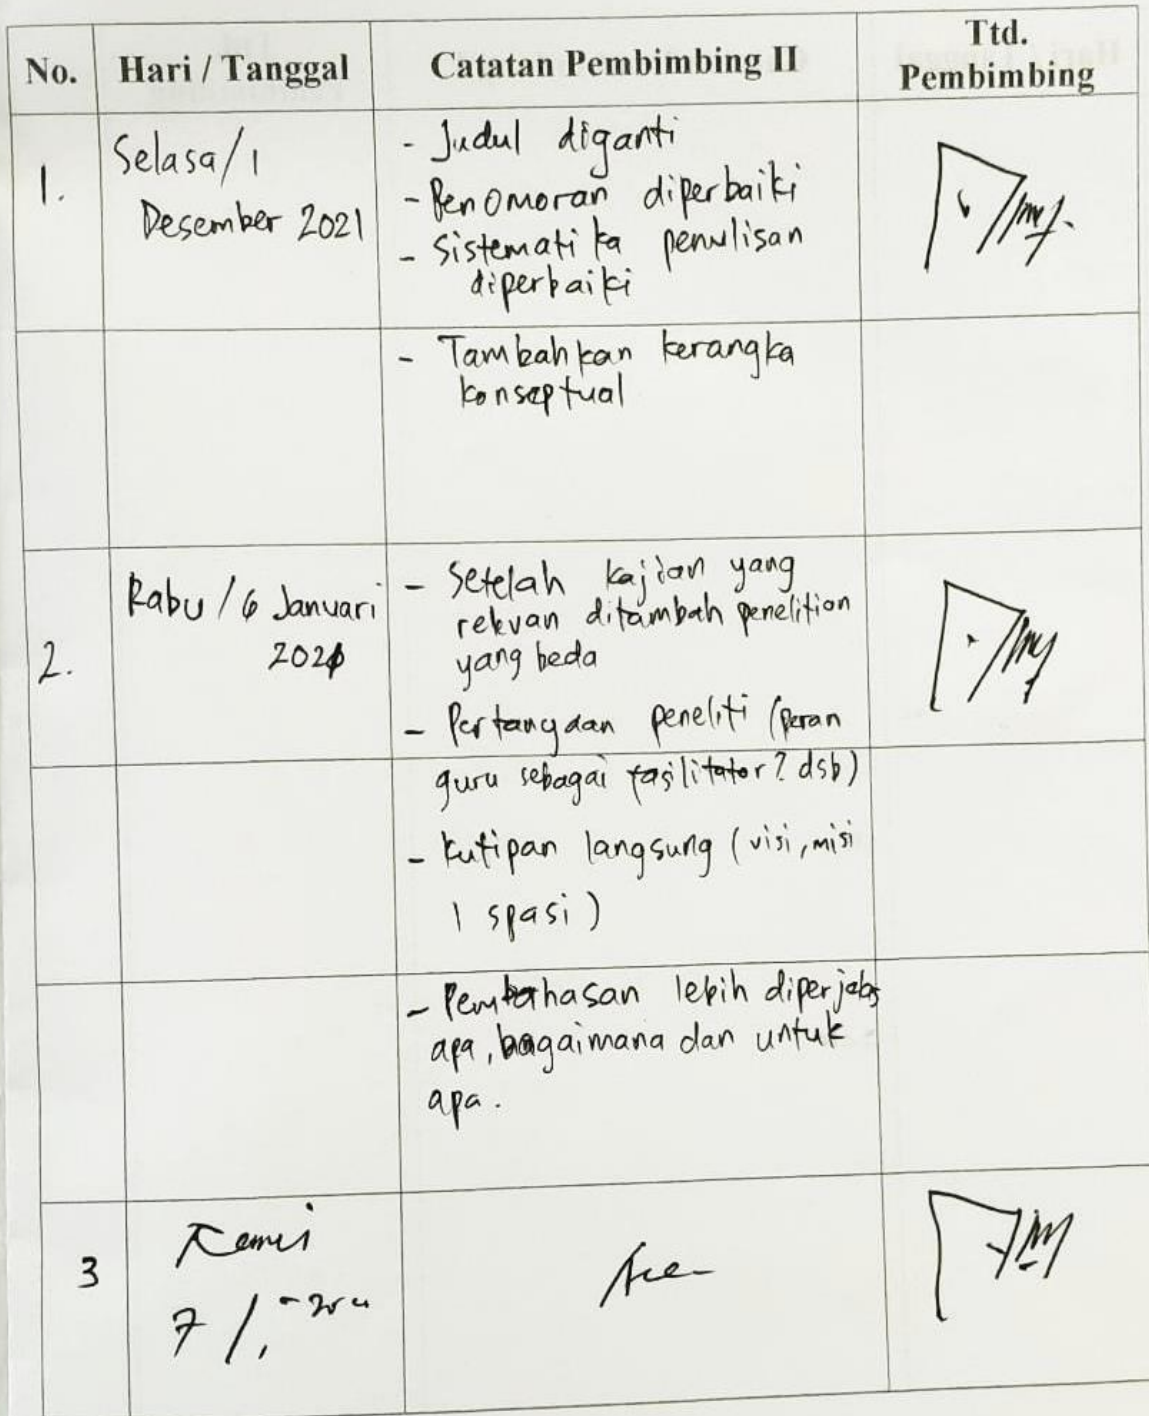 No. Hari / Tanggal Catatan Pembimbing II Ttd. Pembimbing
1. Selasa/1
Desember 2021
- Judul diganti
- Penomoran diperbaiki
- Sistematika penulisan
diperbaiki
- Tambahkan kerangka
konseptual
2. Rabu / 6 Januari
2021
- Setelah kajian yang
relevan ditambah penelition
yang beda
- Pertanyaan peneliti (peran
guru sebagai fasilitator? dsb)
- Kutipan langsung (visi, misi
1 spasi)
- Pembahasan lebih diperjelas
apa, bagaimana dan untuk
apa.
3 Kamis
7 /
Acc